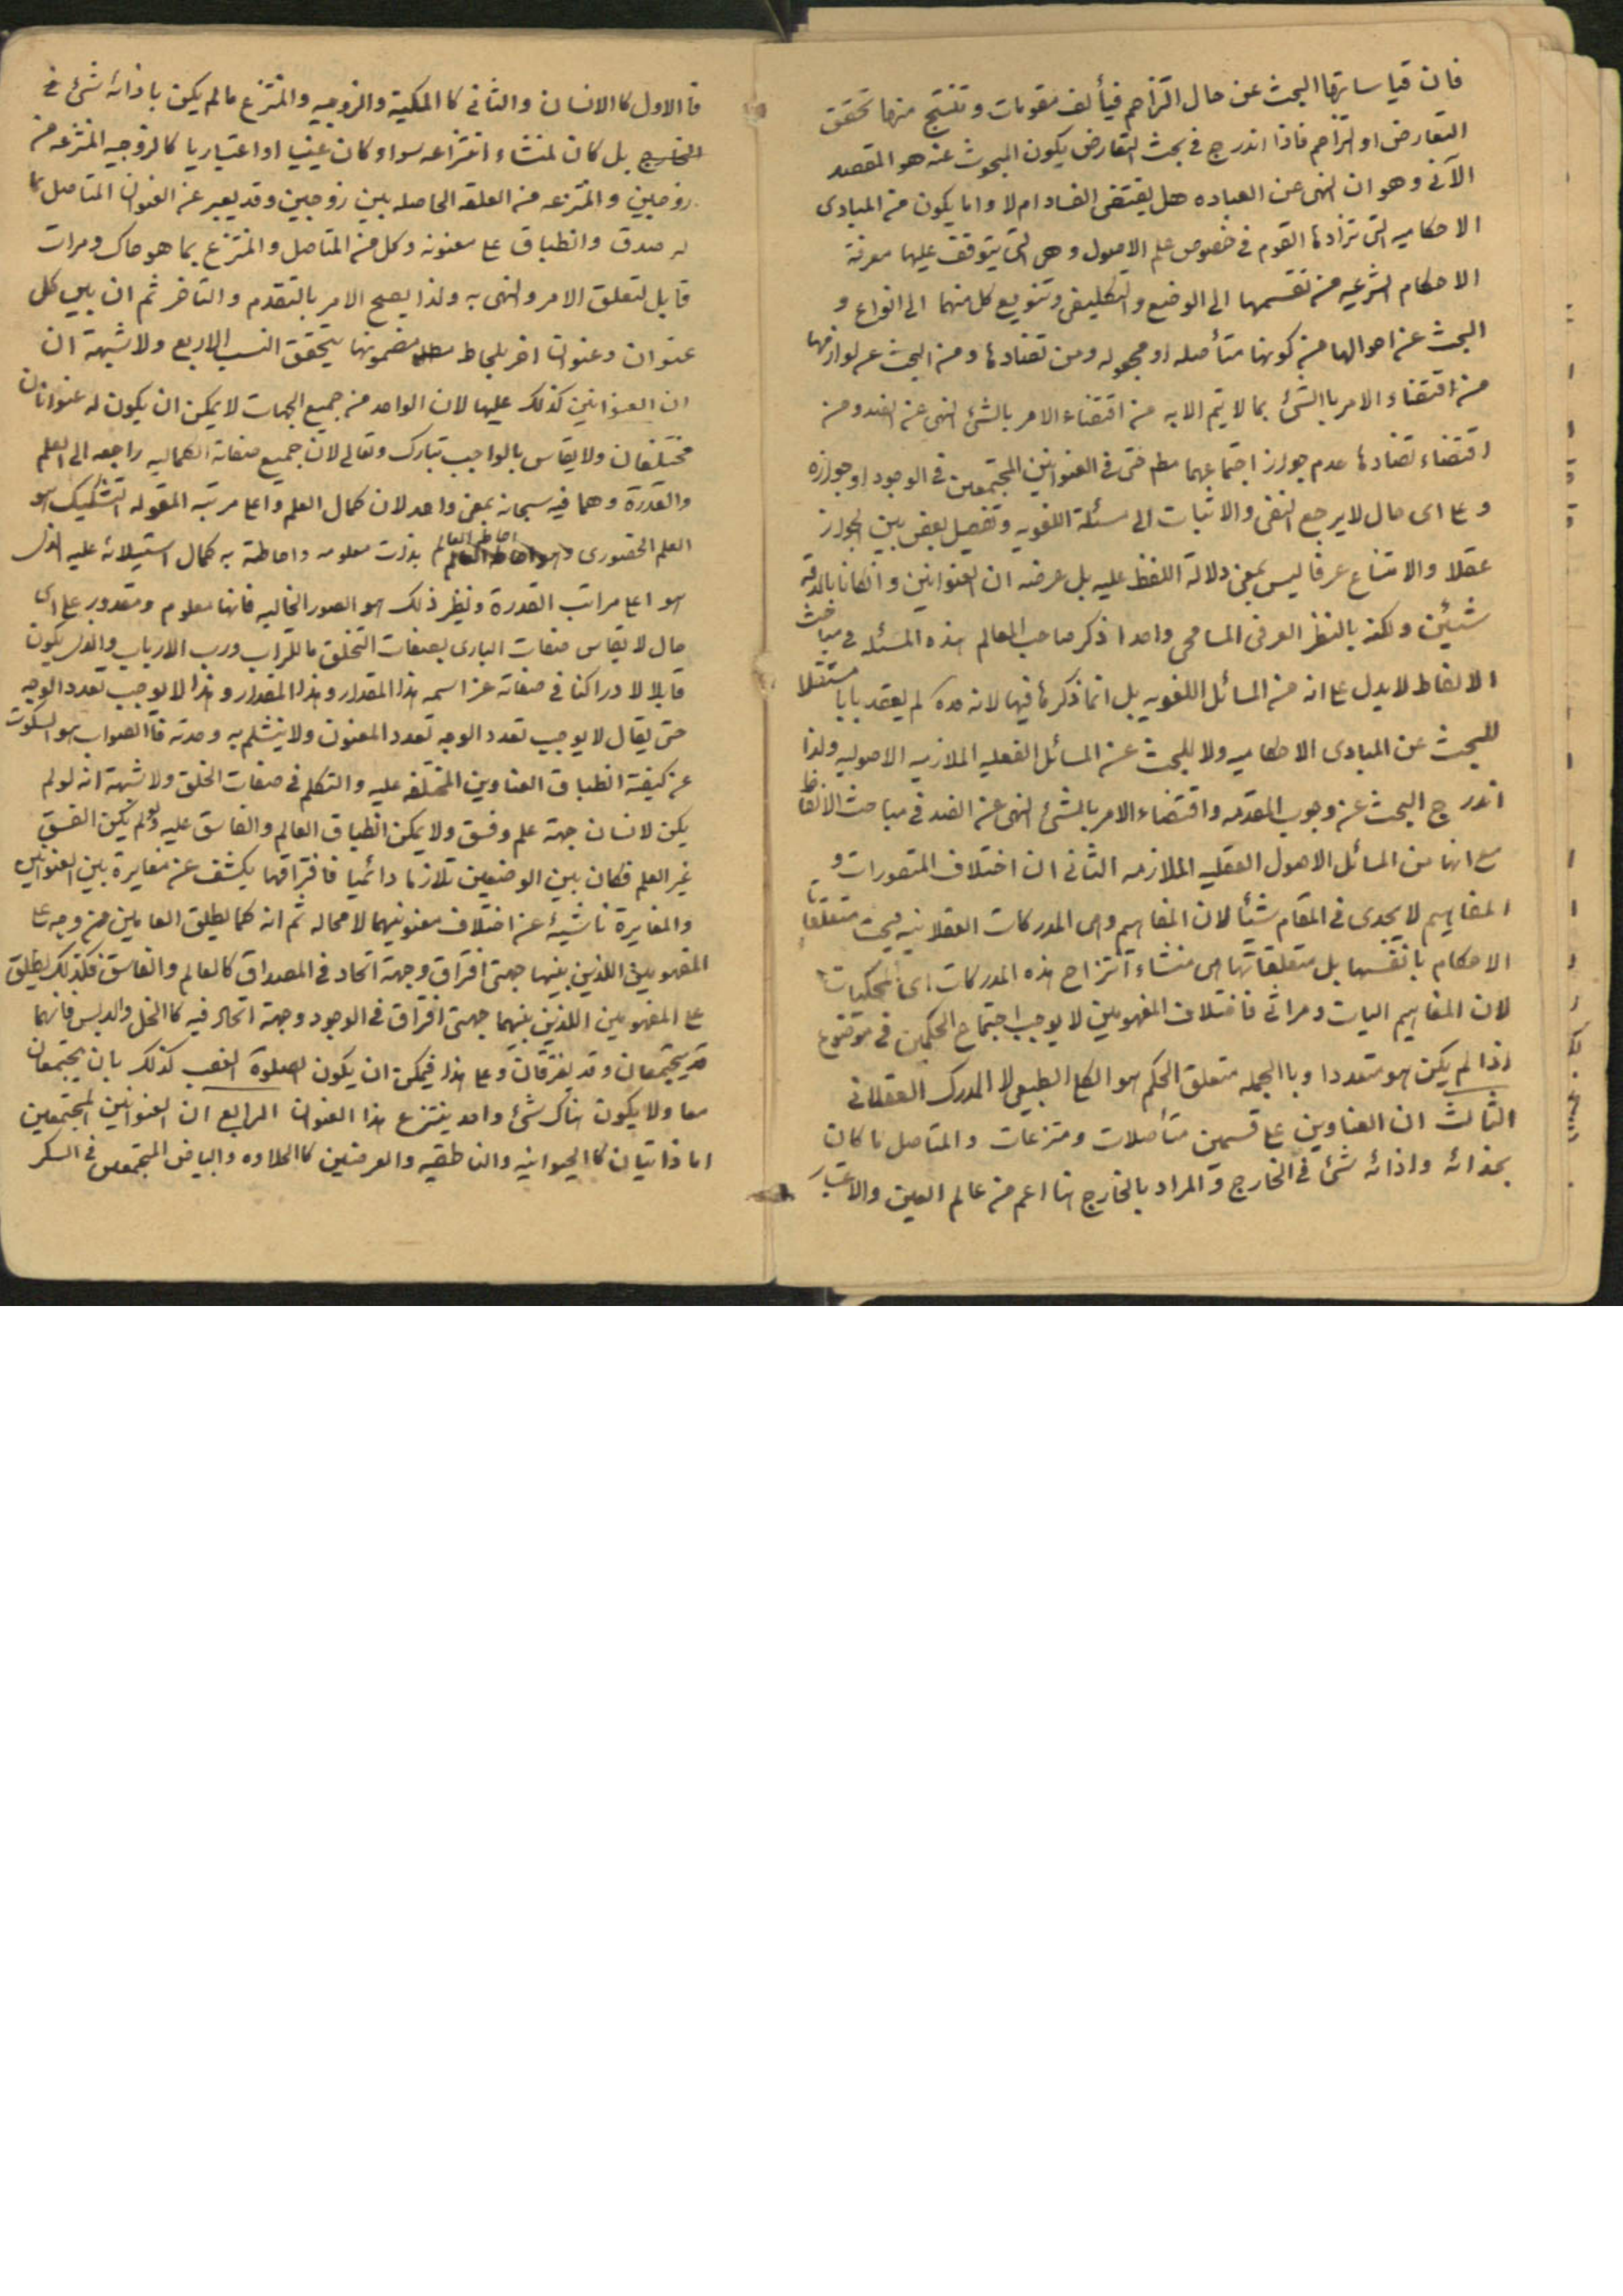 فان قياساتها البحث عن حال التزاحم فيألف مقومات وتنتج منها تحقق
التعارض او التزاحم فاذا اندرج في بحث التعارض يكون المبحوث عنه هو المقصد
الآتى وهو ان النهى عن العباده هل يقتضى الفساد ام لا واما يكون من المبادى
الاحكاميه التى تزادها القوم فى خصوص علم الاصول وهى التى يتوقف عليها معرفة
الاحكام الشرعيه من تقسمها الى الوضع والتكليفى وتنويع كل منهما الى انواع و
البحث عن احوالها من كونها متأصله او مجعوله ومن تضادها ومن البحث عن لوازمها
من اقتضاء الامر بالشئ بما لا يتم الا به من اقتضاء الامر بالشئ النهى عن الضد ومن
اقتضاء تضادها عدم جواز اجتماعهما مطم حتى فى العنوانين المجتمعين فى الوجود او جوازه
وع اى حال لا يرجع النفى والاثبات الى مسئلة اللغويه وتفصيل بعض بين الجواز
عقلا والامتناع عرفا ليس بمعنى دلالة اللفظ عليه بل غرضه ان العنوانين وانكانا بالدقه
شيئين ولكنه بالنظر العرفى المسامحى واحدا ذكر صاحب المعالم هذه المسئله فى مباحث
الالفاظ لا يدل ع انه من المسائل اللغويه بل انما ذكرها فيها لانه قده لم يعقد بابا مستقلا
للبحث عن المبادى الاحكاميه ولا للبحث عن المسائل العقليه الملازميه الاصوليه ولذا
اندرج البحث عن وجوب المقدمه واقتضاء الامر بالشئ النهى عن الضد فى مباحث الالفاظ
مع انها من المسائل الاصول العقليه الملازمه الثانى ان اختلاف المتصورات و
المفاهيم لا يجدى فى المقام شيئا لان المفاهيم وهى المدركات العقلانيه ليست متعلقات
الاحكام بانفسها بل متعلقاتها هى منشاء انتزاح هذه المدركات اى المحكيات
لان المفاهيم اليات ومرائى فاختلاف المفهومين لا يوجب اجتماع الحكمين فى موضوع
اذا لم يكن هو متعددا وبالجمله متعلق الحكم هو الكلى الطبيعى لا المدرك العقلانى
الثالث ان العناوين ع قسمين متأصلات ومتزعات والمتاصل ما كان
بحذائه واذائه شئ فى الخارج والمراد بالخارج هنا اعم من عالم العين والاعتبار
فا الاول كا الانسان والثانى كا الملكية والزوجيه والمنتزع مالم يكن باذائه شئ فى
الخارج بل كان لمنشاء انتزاعه سواء كان عينيا او اعتباريا كالزوجيه المنتزعه من
زوجين والمنتزعه من العلقه الحاصله بين زوجين وقد يعبر عن العنوان المتاصل بما
له صدق وانطباق ع معنونه وكل من المتاصل والمنتزع بما هو حاك ومرات
قابل لتعلق الامر والنهى به ولذا يصح الامر بالتقدم والتاخر ثم ان بين كل
عنوان وعنوان اخر بلحاظ مضمونها يتحقق النسب الاربع ولا شبهة ان
ان العنوانين كذلك عليها لان الواحد من جميع الجهات لا يمكن ان يكون له عنوانان
مختلفان ولا يقاس بالواجب تبارك وتعالى لان جميع صفاته الكماليه راجعه الى العلم
والقدرة وهما فيه سبحانه بمعنى واحد لان كمال العلم واعلا مرتبه المقوله التشكيك هو
العلم الحضورى واحاطه العالم بذات معلومه واحاطته به كمال استيلائه عليه الذى
هو اعلا مراتب القدرة ونظير ذلك هو الصور الخاليه فانها معلوم ومقدور على اى
حال لا يقاس صفات البارى بصفات التخلق ما للتراب ورب الارباب والذى يكون
قابلا لادراكنا فى صفاته عز اسمه هذا المقدار وهذا المقدار وهذا لا يوجب تعدد الوجه
حتى يقال لا يوجب تعدد الوجه تعدد المعنون ولا ينثلم به وحدته فا الصواب هو السكوت
عن كيفية انطباق العناوين المختلفه عليه والتكلم فى صفات الخلق ولا شبهة انه لولم
يكن لانسان جهة علم وفسق ولا يمكن انطباق العالم والفاسق عليه ولو لم يكن الفسق
غير العلم فكان بين الوصفين تلازما دائميا فافتراقهما يكشف عن مغايرة بين العنوانين
والمغايرة ناشيئه عن اختلاف معنونيهما لا محاله ثم انه كما يطلق العامين من وجه ع
المفهومين اللذين بينهما جهتى افتراق وجهة اتحاد فى المصداق كا لعالم والفاسق فكذلك يطلق
ع المفهومين اللذين بينهما جهتى افتراق فى الوجود وجهة اتحاد فيه كا الخل والدبس فانهما
قد يجتمعان وقد يفترقان وع هذا فيمكن ان يكون الصلوة الغصب كذلك بان يجتمعان
معا ولا يكون هناك شئ واحد ينتزع هذا العنوان الرابع ان العنوانين المجتمعين
اما ذاتيان كا الحيوانيه والناطقيه والعرضين كا الحلاوه والبياض المجتمعين فى السكر